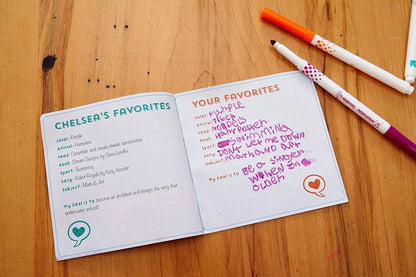 CHELSEA'S FAVORITES
Color: Purple
Animal: Hamsters
Food: Cucumber and cream cheese sandwiches
Book: Dream Designs by Clara Landke
Sport: Swimming
Song: Robot Royals by Patty Wonder
Subject: Math & Art
My Goal is to become an architect and design the very first
underwater school!
YOUR FAVORITES
Color: purple
Animal:
Food: noodels
Book: Harry Potter
Sport: Swimming
Song: DONT Let me DOWN
Subject: math and art
My goal is to BE a singer
WHEN I'm
older